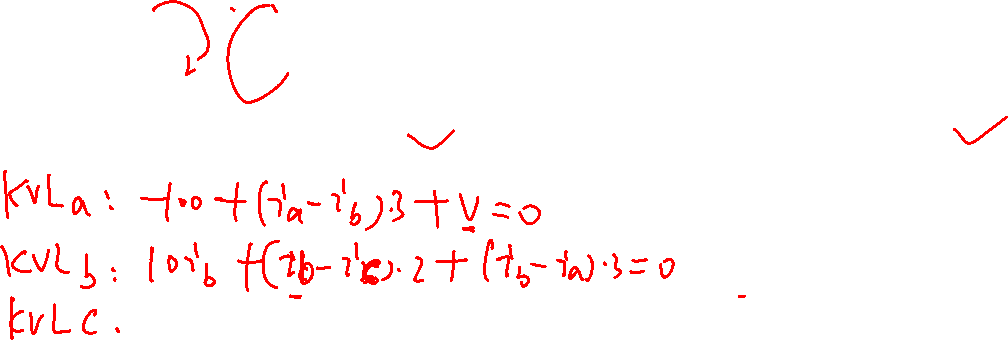 KVLa: -10 + (ia - ib)·3 + V = 0
KVLb: 10ib + (ib - ic)·2 + (ib - ia)·3 = 0
KVLC.